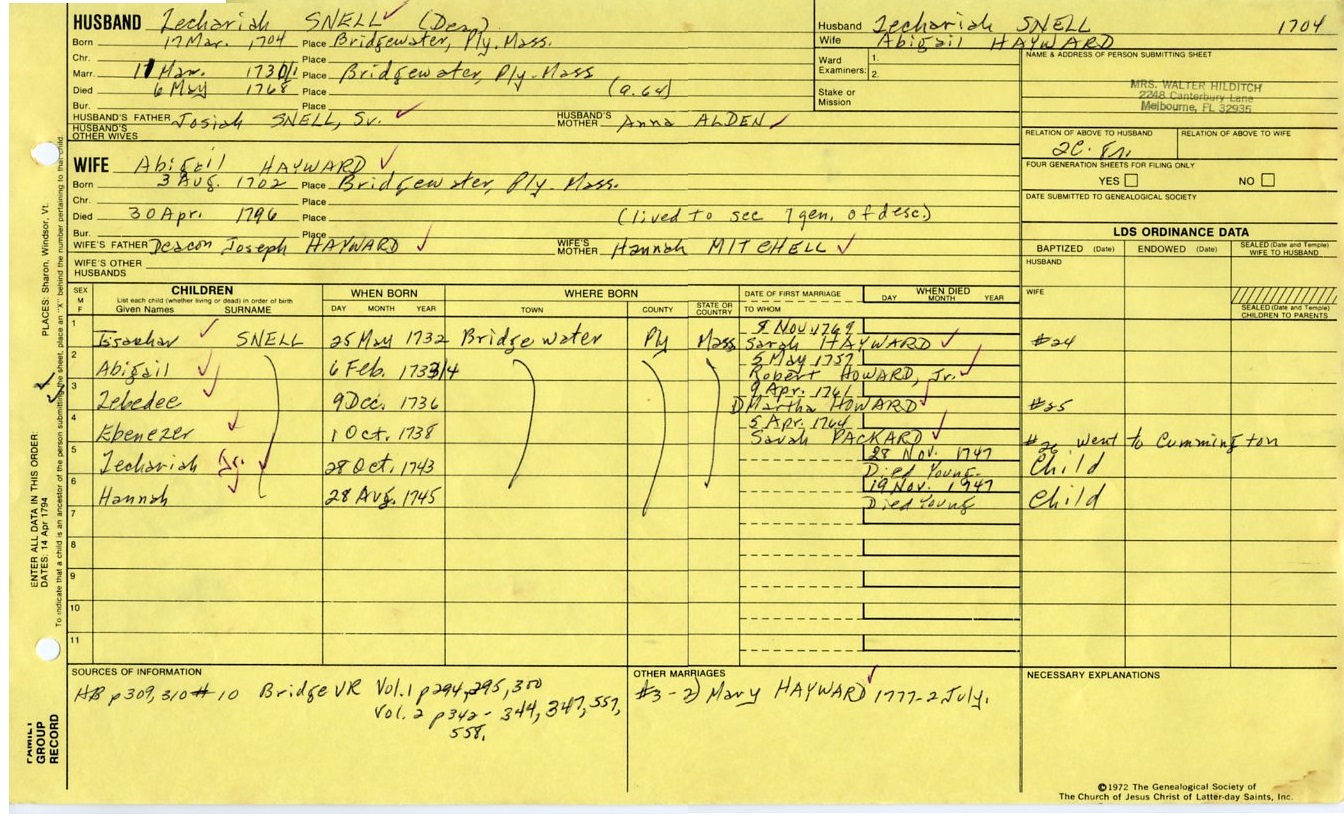 HUSBAND Zechariah SNELL (Dea)
Born 17 Mar. 1704 Place Bridgewater, Ply. Mass.
Chr. Place
Marr. 11 Mar. 1730/1 Place Bridgewater, Ply. Mass
Died 6 May 1768 Place (a. 64)
Bur. Place
HUSBAND'S FATHER Josiah SNELL, Sr. HUSBAND'S MOTHER Anna ALDEN
HUSBAND'S OTHER WIVES
Husband Zechariah SNELL 1704
Wife Abigail HAYWARD
Ward Examiners: 1.
2.
Stake or Mission
NAME & ADDRESS OF PERSON SUBMITTING SHEET
MRS. WALTER HILDITCH
2248 Canterbury Lane
Melbourne, FL 32935
RELATION OF ABOVE TO HUSBAND RELATION OF ABOVE TO WIFE
2C.
FOUR GENERATION SHEETS FOR FILING ONLY
YES NO
DATE SUBMITTED TO GENEALOGICAL SOCIETY
WIFE Abigail HAYWARD
Born 3 Aug. 1702 Place Bridgewater, Ply. Mass.
Chr. Place
Died 30 Apr. 1796 Place (lived to see 7 gen. of desc.)
Bur. Place
WIFE'S FATHER Deacon Joseph HAYWARD WIFE'S MOTHER Hannah MITCHELL
WIFE'S OTHER HUSBANDS
LDS ORDINANCE DATA
BAPTIZED (Date) ENDOWED (Date) SEALED (Date and Temple) WIFE TO HUSBAND
HUSBAND
WIFE
SEALED (Date and Temple) CHILDREN TO PARENTS
SEX M F
CHILDREN
List each child (whether living or dead) in order of birth
Given Names SURNAME
WHEN BORN
DAY MONTH YEAR
WHERE BORN
TOWN COUNTY STATE OR COUNTRY
DATE OF FIRST MARRIAGE
TO WHOM
WHEN DIED
DAY MONTH YEAR
1 Issachar SNELL 25 May 1732 Bridgewater Ply Mass 8 Nov 1769 Sarah HAYWARD #24
2 Abigail 6 Feb. 1733/4 5 May 1757 Robert HOWARD, Jr.
3 Zebedee 9 Dec. 1736 9 Apr. 1761 Martha HOWARD #25
4 Ebenezer 1 Oct. 1738 5 Apr. 1764 Sarah PACKARD #26 went to Cummington
5 Zechariah Jr. 28 Oct. 1743 28 Nov. 1747 Died Young Child
6 Hannah 28 Aug. 1745 19 Nov. 1747 Died Young Child
7
8
9
10
11
SOURCES OF INFORMATION
HB p309, 310 #10 Bridge VR Vol. 1 p294, 295, 300
Vol. 2 p342 - 344, 347, 557,
558.
OTHER MARRIAGES
#3 - 2) Mary HAYWARD 1777 - 2 July.
NECESSARY EXPLANATIONS
©1972 The Genealogical Society of
The Church of Jesus Christ of Latter-day Saints, Inc.
ENTER ALL DATA IN THIS ORDER:
DATES: 14 Apr 1794
PLACES: Sharon, Windsor, Vt.
To indicate that a child is an ancestor of the person submitting the sheet, place an "X" behind the number pertaining to that child.
FAMILY GROUP RECORD